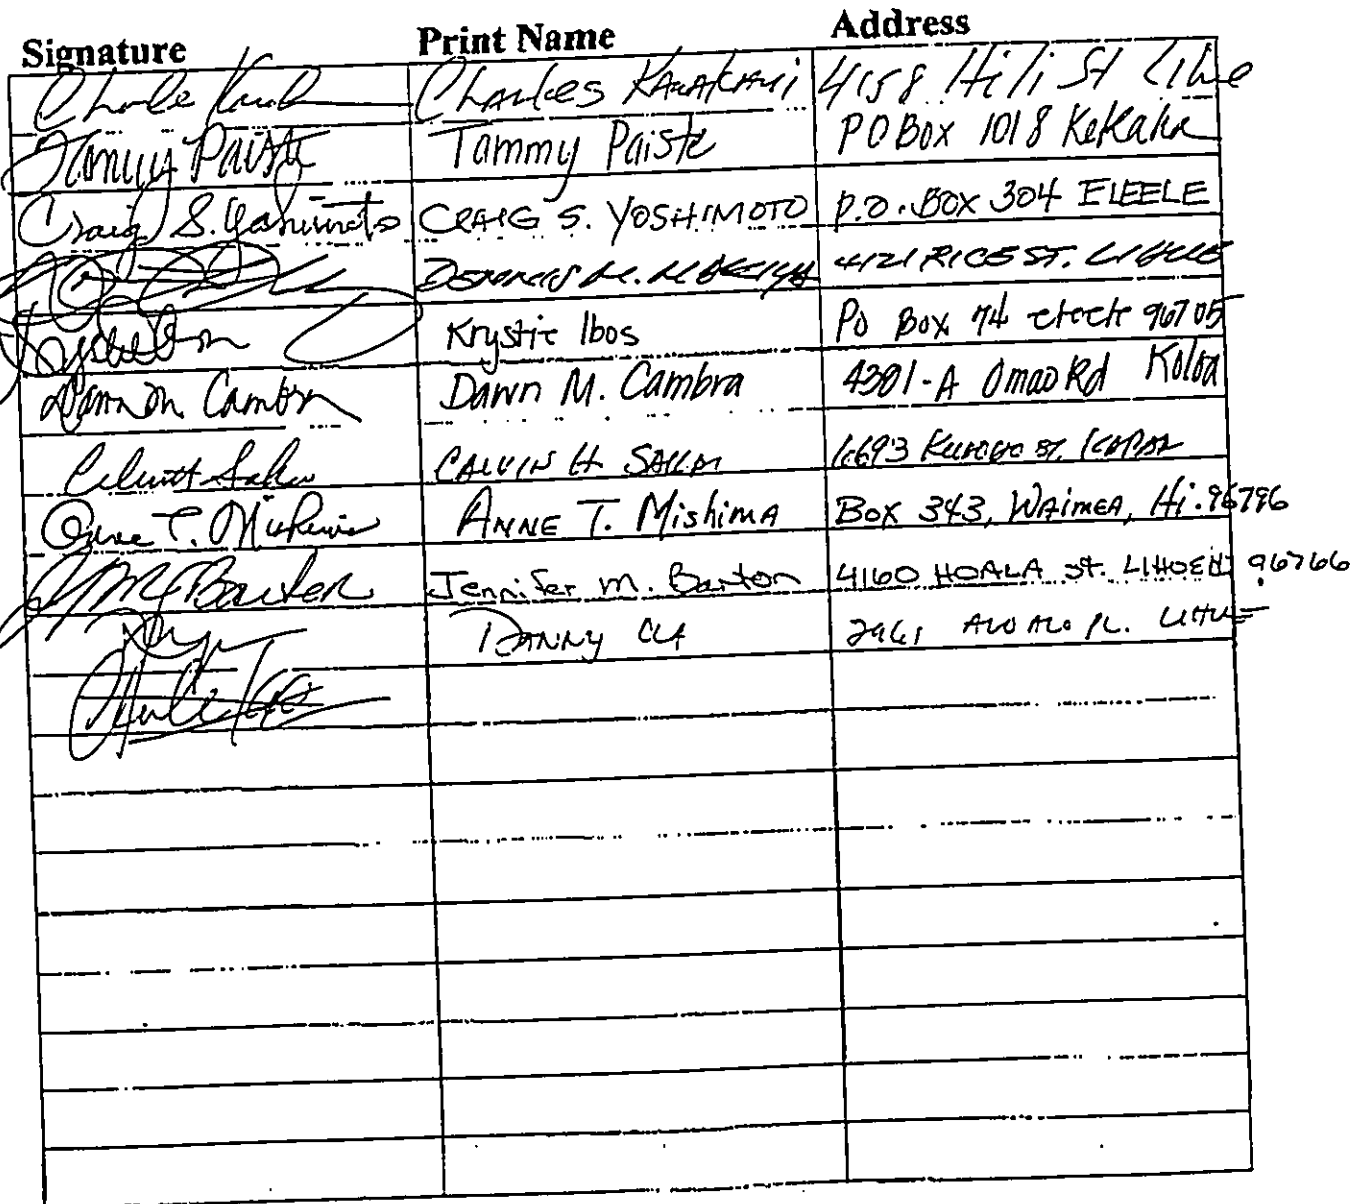 Signature Print Name Address
Charles 4158 Hili St Lihue
Tammy Paiste Tammy Paiste PO Box 1018 Kekaha
Craig S. Yoshimoto CRAIG S. YOSHIMOTO P.O. BOX 304 ELEELE
4121 RICE ST. LIHUE
Krystie Ibos PO Box 74 eleele 96705
Dawn M. Cambra Dawn M. Cambra 4301-A Omao Rd Koloa
CALVIN H. SAKAI ST. KAPAA
Anne T. Mishima ANNE T. MISHIMA BOX 343, WAIMEA, Hi. 96796
JM Barton Jennifer M. Barton 4160 HOALA St. LIHUE HI 96766
DANNY PL. LIHUE